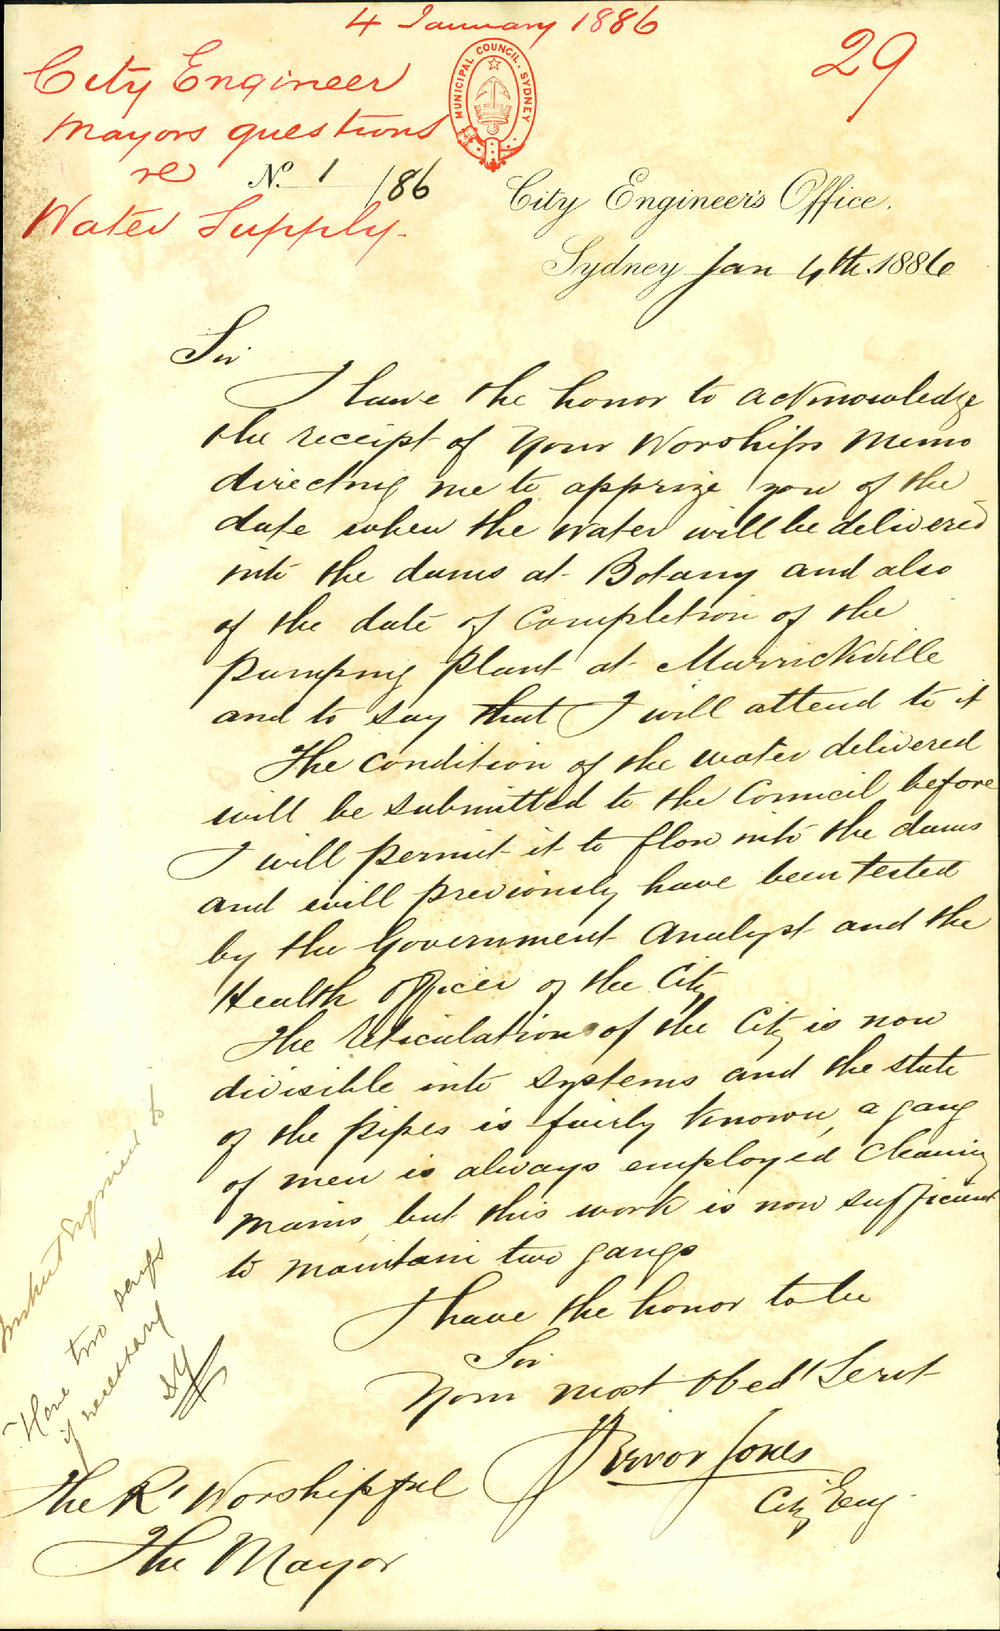 4 January 1886
29
City Engineer
Mayors questions
re
Water Supply.
MUNICIPAL COUNCIL. SYDNEY
No. 1 /86
City Engineer's Office.
Sydney Jan 4th. 1886
Sir
I have the honor to acknowledge
the receipt of Your Worships Memo
directing me to apprize you of the
date when the water will be delivered
into the dams at Botany and also
of the date of Completion of the
Pumping Plant at Marrickville
and to say that I will attend to it
The Condition of the water delivered
will be submitted to the Council before
I will permit it to flow into the dams
and will previously have been tested
by the Government Analyst and the
Health Officer of the City
The reticulation of the City is now
divisible into systems and the state
of the pipes is fairly known, a gang
of men is always employed cleaning
Mains, but this work is now sufficient
to maintain two gangs
I have the honor to be
Sir
Your most Obedt Servt
Trevor Jones
City Eng.
The Rt Worshipful
The Mayor
Instruct Engineer to
Have two gangs
if necessary